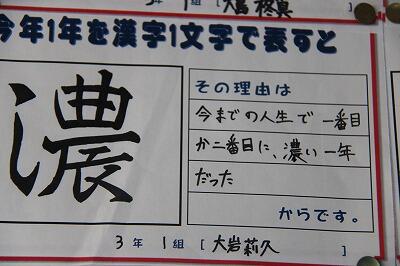 3年 1組 [大嶌柊真
今年1年を漢字1文字で表すと
濃
その理由は
今までの人生で 一番目
か二番目に、濃い一年
だった
からです。
3年 1組 [大岩莉久 ]